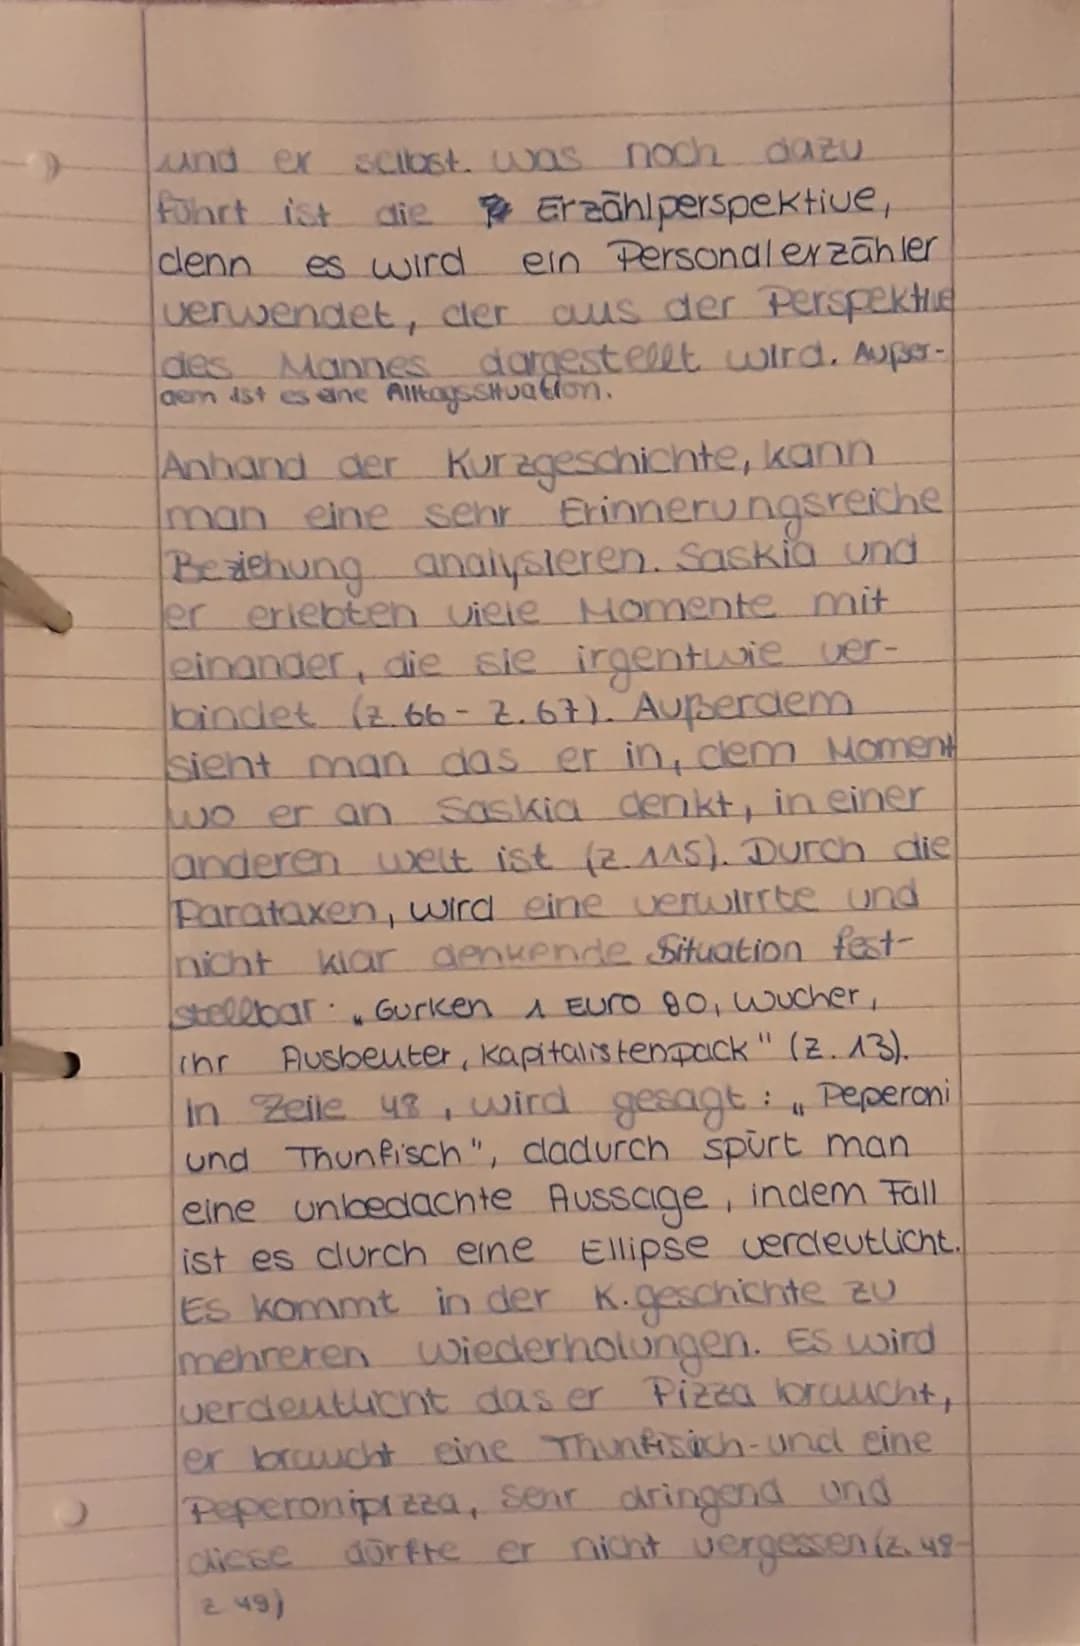 und er selbst. was noch dazu
führt ist die Erzählperspektive,
denn es wird ein Personalerzähler
verwendet, der aus der Perspektive
des Mannes dargestellt wird. Außer-
dem ist es eine Alltagssituation.
Anhand der Kurzgeschichte, kann
man eine sehr Erinnerungsreiche
Beziehung analysieren. Saskia und
er erlebten viele Momente mit
einander, die sie irgentwie ver-
bindet (z. 66 - z. 67). Außerdem
sieht man das er in, dem Moment
wo er an Saskia denkt, in einer
anderen welt ist (z. 115). Durch die
Parataxen, wird eine verwirrte und
nicht klar denkende Situation fest-
stellbar: „Gurken 1 Euro 80, Wucher,
ihr Ausbeuter, Kapitalistenpack" (z. 13).
In Zeile 48, wird gesagt: „Peperoni
und Thunfisch", dadurch spürt man
eine unbedachte Aussage, indem Fall
ist es durch eine Ellipse verdeutlicht.
Es kommt in der K.geschichte zu
mehreren Wiederholungen. Es wird
verdeutlicht das er Pizza braucht,
er braucht eine Thunfisch-und eine
Peperonipizza, sehr dringend und
diese dürfte er nicht vergessen (z. 48-
z 49)